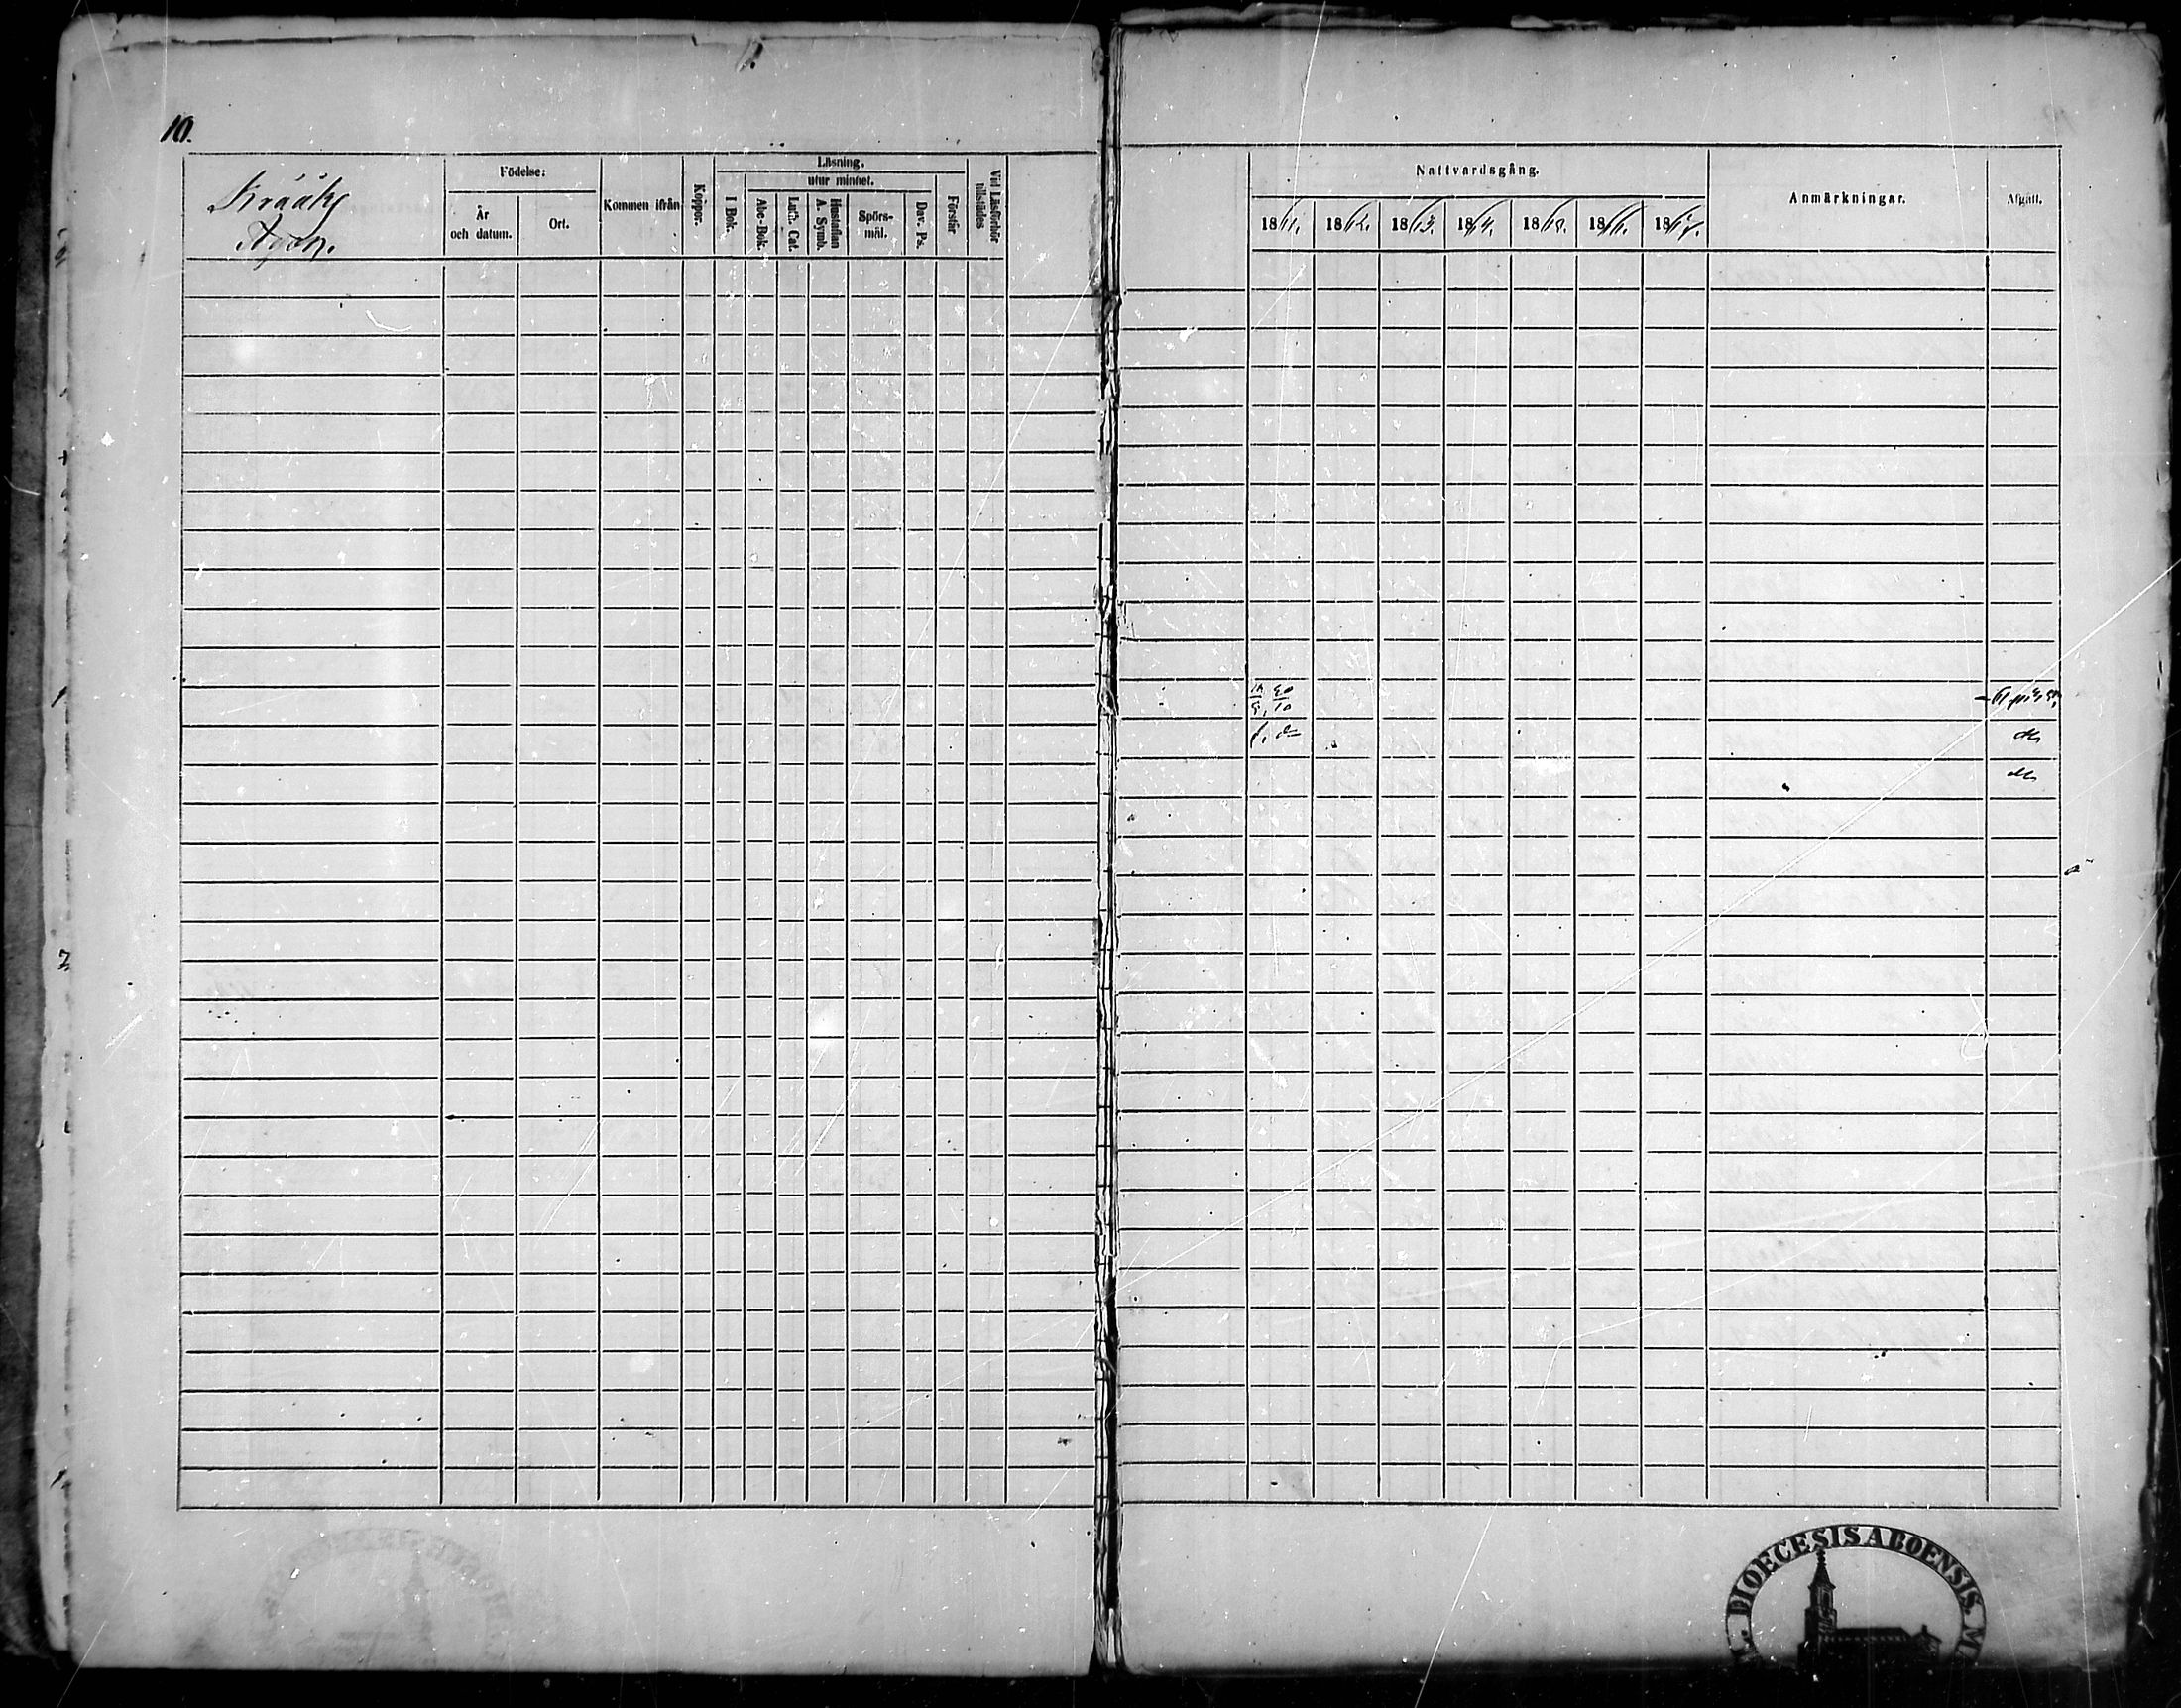 10.
Födelse:
År
och datum.
Ort.
Kommen ifrån
Koppor.
Läsning,
utur minnet.
I Bok.
Abc-Bok.
Luth. Cat.
Hustaflan
A. Symb.
Spörs-
mål.
Dav. Ps.
Förstår
Vid Läsförhör
tillstädes
Nattvardsgång.
1861. 1862. 1863. 1864. 1865. 1866. 1867.
Anmärkningar.
Afgått.
DIOECESIS ABOENSIS. M